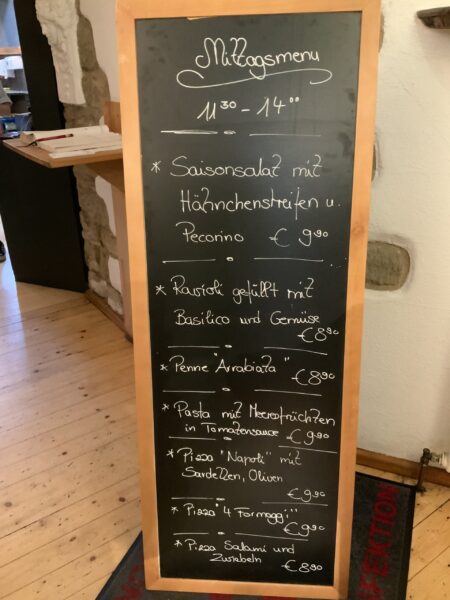 Mittagsmenu
11³⁰ - 14⁰⁰
* Saisonsalat mit
Hähnchenstreifen u.
Pecorino € 9⁹⁰
* Ravioli gefüllt mit
Basilico und Gemüse
€ 8⁹⁰
* Penne "Arrabiata"
€ 8⁹⁰
* Pasta mit Meeresfrüchten
in Tomatensauce € 9⁹⁰
* Pizza "Napoli" mit
Sardellen, Oliven
€ 9⁹⁰
* Pizza "4 Formaggi"
€ 9⁹⁰
* Pizza Salami und
Zwiebeln € 8⁹⁰